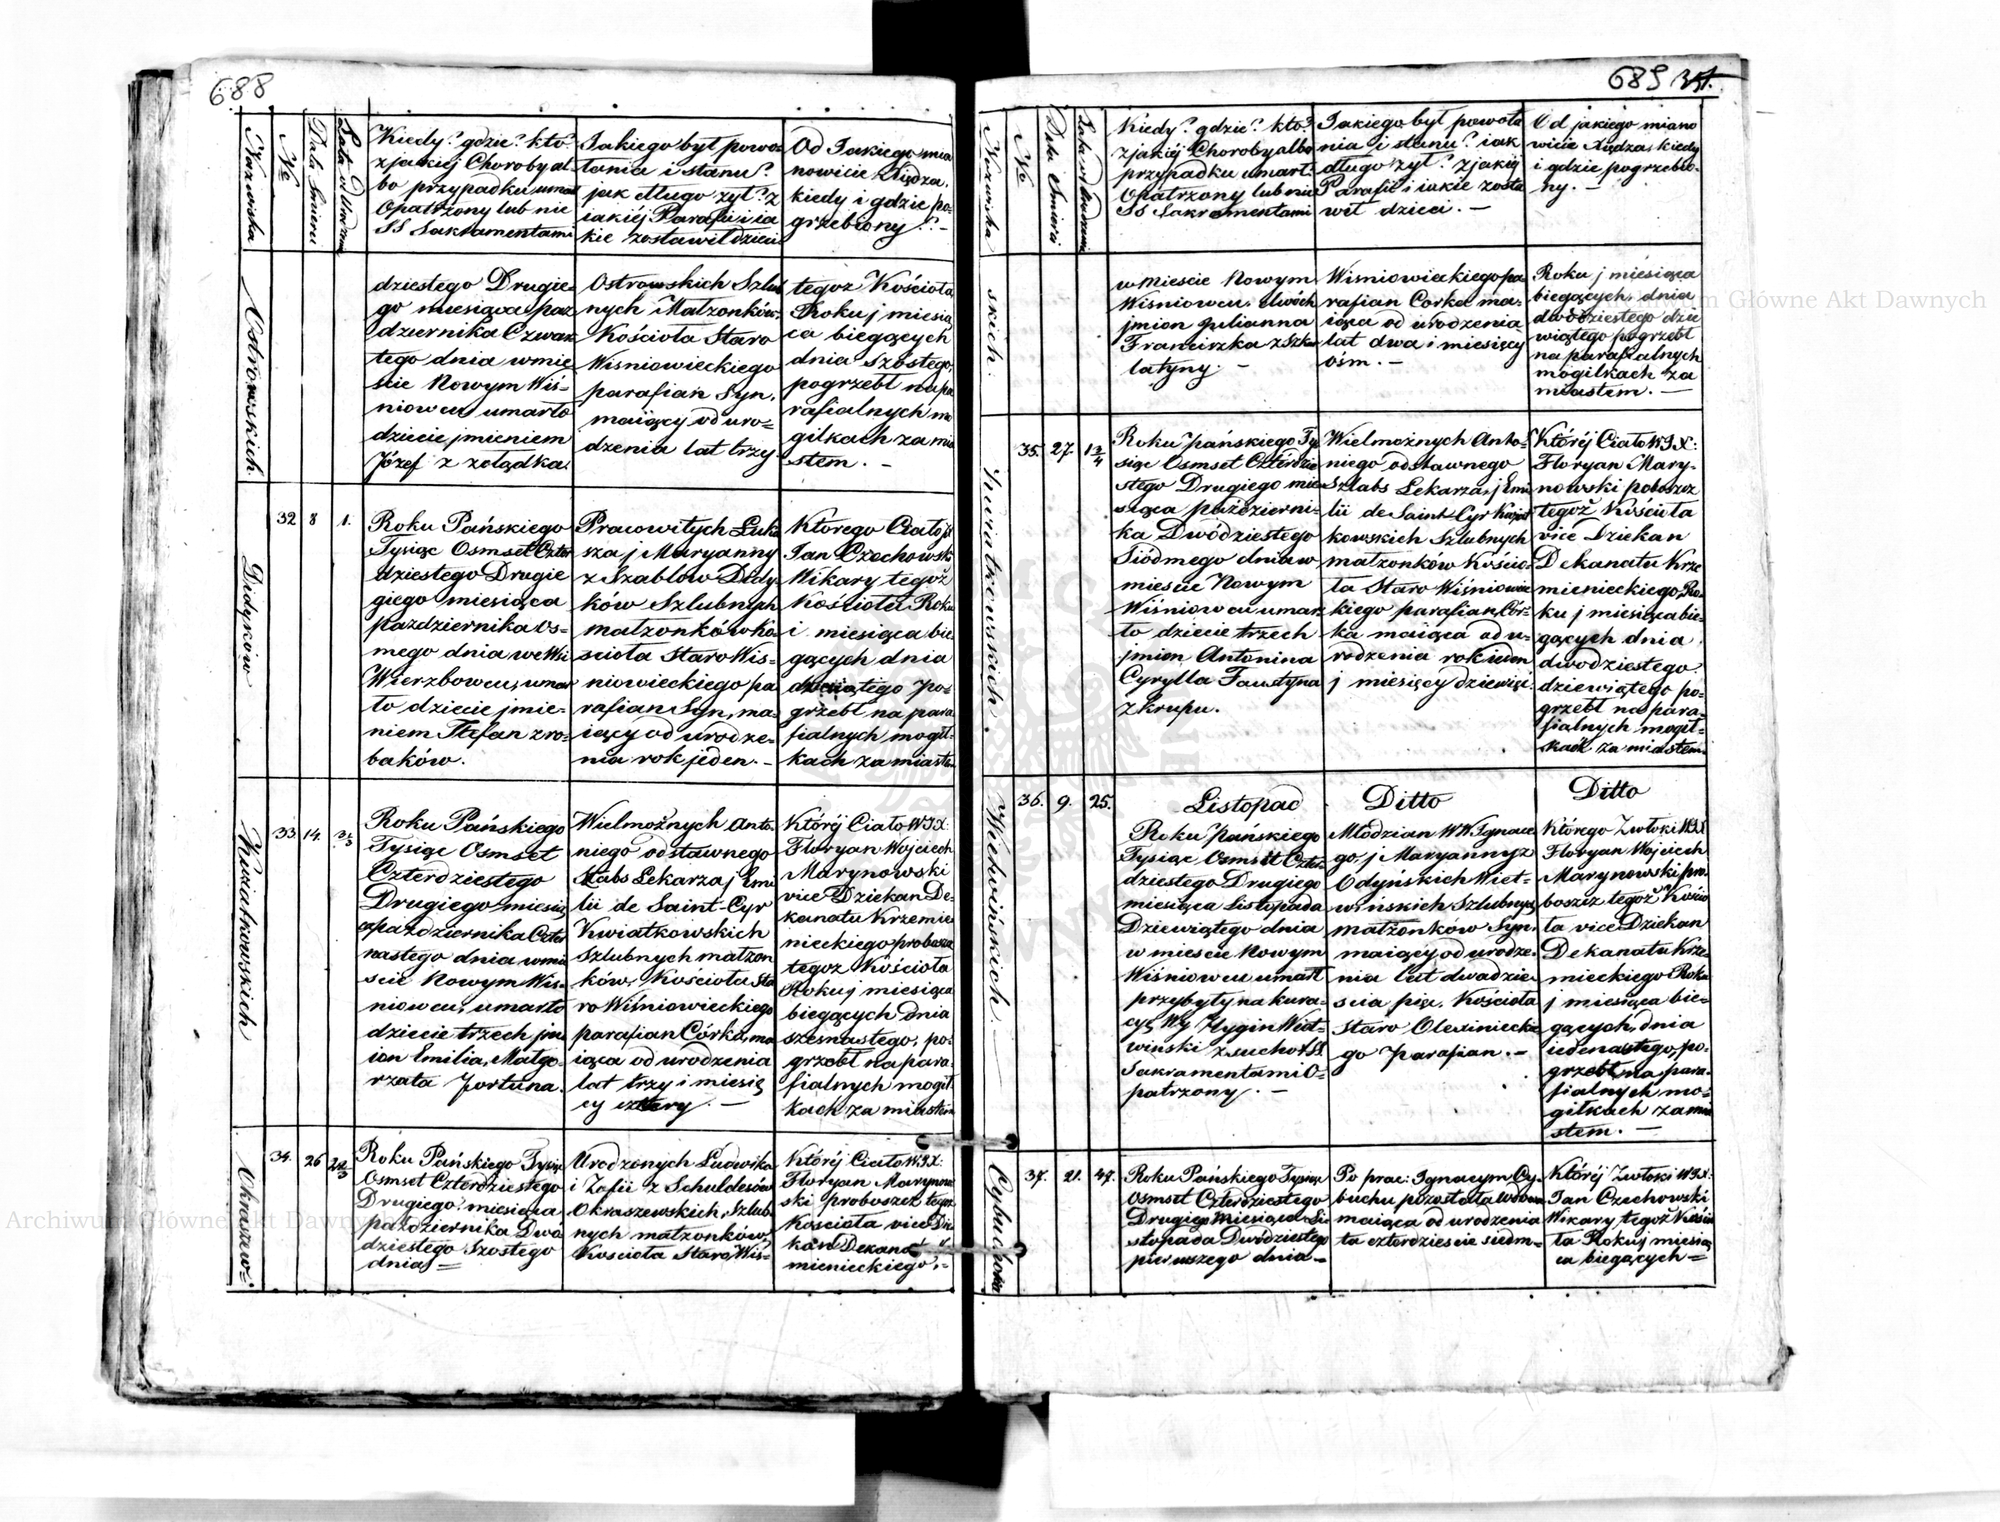 688
Nazwiska
No
Data Śmierci
Lata od Urodzenia
Kiedy? gdzie? kto?
z jakiéj Choroby al
bo przypadku umarł
Opatrzony lub nie
SS Sakramentami
Jakiego był powo-
łania i stanu?
jak długo żył? z
iakiéj Parafii i ia
kie zostawił dzieci
Od Jakiego mia
nowicie Xiędza,
kiedy i gdzie po-
grzebiony? -
Ostrowskich
dziestego Drugie-
go miesiąca paz
dziernika Czwar
tego dnia w mie
ście Nowym Wiś-
niowcu umarło
dziecie jmieniem
Józef z żołądka
Ostrowskich Szlub
nych Małżonków
Kościoła Staro
Wisniowieckiego
parafian Syn,
maiący od uro-
dzenia lat trzy
tegoż Kościoła
Roku j miesią
ca bieżących
dnia szóstego,
pogrzebł na pa
rafialnych mo
giłkach za mia
stem. -
Didyków
32
8
1.
Roku Pańskiego
Tysiąc Osmset Czter
dziestego Drugie
giego miesiąca
pazdziernika Os-
mego dnia we Wsi
Wierzbowcu, umar
ło dziecie jmie-
niem Stefan z ro-
baków.
Pracowitych Łuka
sza j Maryanny
z Szablow Didy-
ków Szlubnych
małżonków Ko-
ścioła Staro Wis-
niowieckiego pa
rafian Syn, ma-
iący od urodze-
nia rok jeden. -
Którego Ciało JX
Jan Czechowski
Wikary tegoż
Kościoła Roku
i miesiąca bie
gących dnia
dziesiątego po-
grzebł na para
fialnych mogił-
kach za miastem
Kwiatkowskich
33
14.
3 1/3
Roku Pańskiego
Tysiąc Osmset
Czterdziestego
Drugiego miesią
ca pazdziernika Czter
nastego dnia w mie
ście Nowym Wis-
niowcu, umarło
dziecie trzech jm
ion Emilia, Małgo-
rzata Fortuna.
Wielmożnych Anto-
niego odstawnego
Sztabs Lekarza j Emi
lii de Saint-Cyr
Kwiatkowskich
Szlubnych małżon
ków, Kościoła Sta
ro Wiśniowieckiego
parafian Córka, ma
iąca od urodzenia
lat trzy i miesię
cy cztery. -
Któréj Ciało WJX:
Floryan Wojciech
Marynowski
vice Dziekan De-
kanatu Krzemie
nieckiego proboszcz
tegoż Kościoła
Roku j miesiąca
biegących dnia
szesnastego, po-
grzebł na para
fialnych mogił
kach za miastem
Okraszew-
34.
26
2 2/3
Roku Pańskiego Tysiąc
Osmset Czterdziestego
Drugiego miesiąca
października Dwó
dziestego szostego
dnia =
Urodzonych Ludwika
i Zofii z Schuldesów
Okraszewskich, Szlub
nych małżonków,
Kościoła Staro Wis-
Któréj Ciało WJX:
Floryan Marynow
ski proboszcz tegoż
Kościoła vice Dzie
kan Dekanatu
mienieckiego, -
689
Nazwiska
No
Data Śmierci
Lata od Urodzenia
Kiedy? gdzie? kto?
z jakiéj Choroby albo
przypadku umarł:
Opatrzony lub nie
SS Sakramentami
Jakiego był powoła
nia i stanu? iak
długo żył? z jakiéj
Parafii i iakie zosta
wił dzieci. -
Od jakiego miano
wicie Xiędza, kiedy
i gdzie pogrzebio-
ny. -
skich.
w miescie Nowym
Wisniowcu, dwóch
jmion Julianna
Franciszka z Szka
latyny. -
Wisniowieckiego pa
rafian Corka ma-
iąca od urodzenia
lat dwa i miesięcy
ośm. -
Roku j miesiąca
biegących dnia
dwódziestego dzie
wiątego pogrzebł
na parafialnych
mogiłkach za
miastem. -
Kwiatkowskich.
35.
27.
1 3/4
Roku pańskiego Ty
siąc Osmset Czterdzie
stego Drugiego mie
siąca październi-
ka Dwódziestego
Siódmego dnia w
miescie Nowym
Wiśniowcu umar
ło dziecie trzech
jmion Antonina
Cyrylla Faustyna
z krupu.
Wielmożnych Anto-
niego odstawnego
Sztabs Lekarza, j Emi
lii de Saint-Cyr Kwiat
kowskich Szlubnych
małżonków Kościo-
ła Staro Wiśniowie
ckiego parafian Cór-
ka maiąca od u-
rodzenia rok ieden
j miesięcy dziewięć.
Któréj Ciało WJX:
Floryan Mary-
nowski proboszcz
tegoż Kościoła
vice Dziekan
Dekanatu Krze
mienieckiego, Ro-
ku j miesiąca bie-
gących dnia
dwodziestego
dziewiątego po-
grzebł na para-
fialnych mogił-
kach za miastem.
Wietwińskich.
36.
9.
25.
Listopad
Roku pańskiego
Tysiąc Osmset Czter
dziestego Drugiego
miesiąca Listopada
Dziewiątego dnia
w miescie Nowym
Wiśniowcu umarł
przybyły na kura-
cyę Wy Hygin Wiet-
wiński z suchot SS
Sakramentami O-
patrzony. -
Ditto
Młodzian WW Ignace
go j Maryanny z
Odyńskich Wiet-
wińskich Szlubnych
małżonków Syn,
maiący od urodze-
nia lat dwadzie-
scia pięć, Kościoła
Staro Olexinieckie
go parafian. -
Ditto
Którego Zwłoki WJX
Floryan Wojciech
Marynowski pro
boszcz tegoż Kościo
ła vice Dziekan
Dekanatu Krze-
mieckiego Roku
j miesiąca bie-
gących, dnia
iedenastego, po-
grzebł na para-
fialnych mo-
giłkach za mia
stem. -
Cybuchowa
37.
21.
47.
Roku Pańskiego Tysiąc
Osmset Czterdziestego
Drugiego Miesiąca Li
stopada Dwódziestego
pierwszego dnia -
Po prac: Ignacym Cy-
buchu pozostała wdowa
maiąca od urodzenia
ła czterdzieście siedm-
Któréj Zwłoki WJX:
Jan Czechowski
Wikary tegoż Kościo
ła Roku j miesią
ca biegących =
Archiwum Główne Akt Dawnych
Archiwum Główne Akt Dawnych